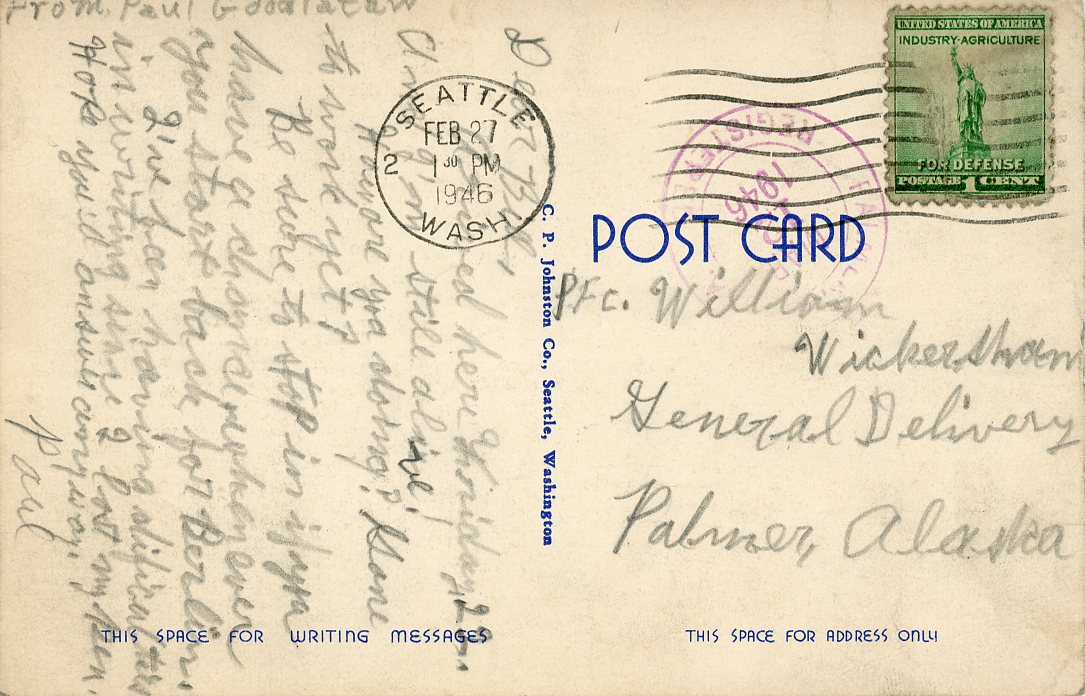 From Paul
Dear Bill,
Arrived here Friday, 22.
and I'm still alive!
How are you doing? Gone
to work yet?
Be sure to stop in if you
have a chance when ever
you start back for Berlin.
I've been having
in writing since I lost my pen.
Hope you'll answer any way.
Paul
SEATTLE
FEB 27
2 1 30 PM
1946
WASH.
C. P. Johnston Co., Seattle, Washington
THIS SPACE FOR WRITING MESSAGES
UNITED STATES OF AMERICA
INDUSTRY·AGRICULTURE
FOR DEFENSE
POSTAGE 1 CENT
REGISTERED
1946
POST CARD
Pfc. William
Wickersham
General Delivery
Palmer, Alaska
THIS SPACE FOR ADDRESS ONLY